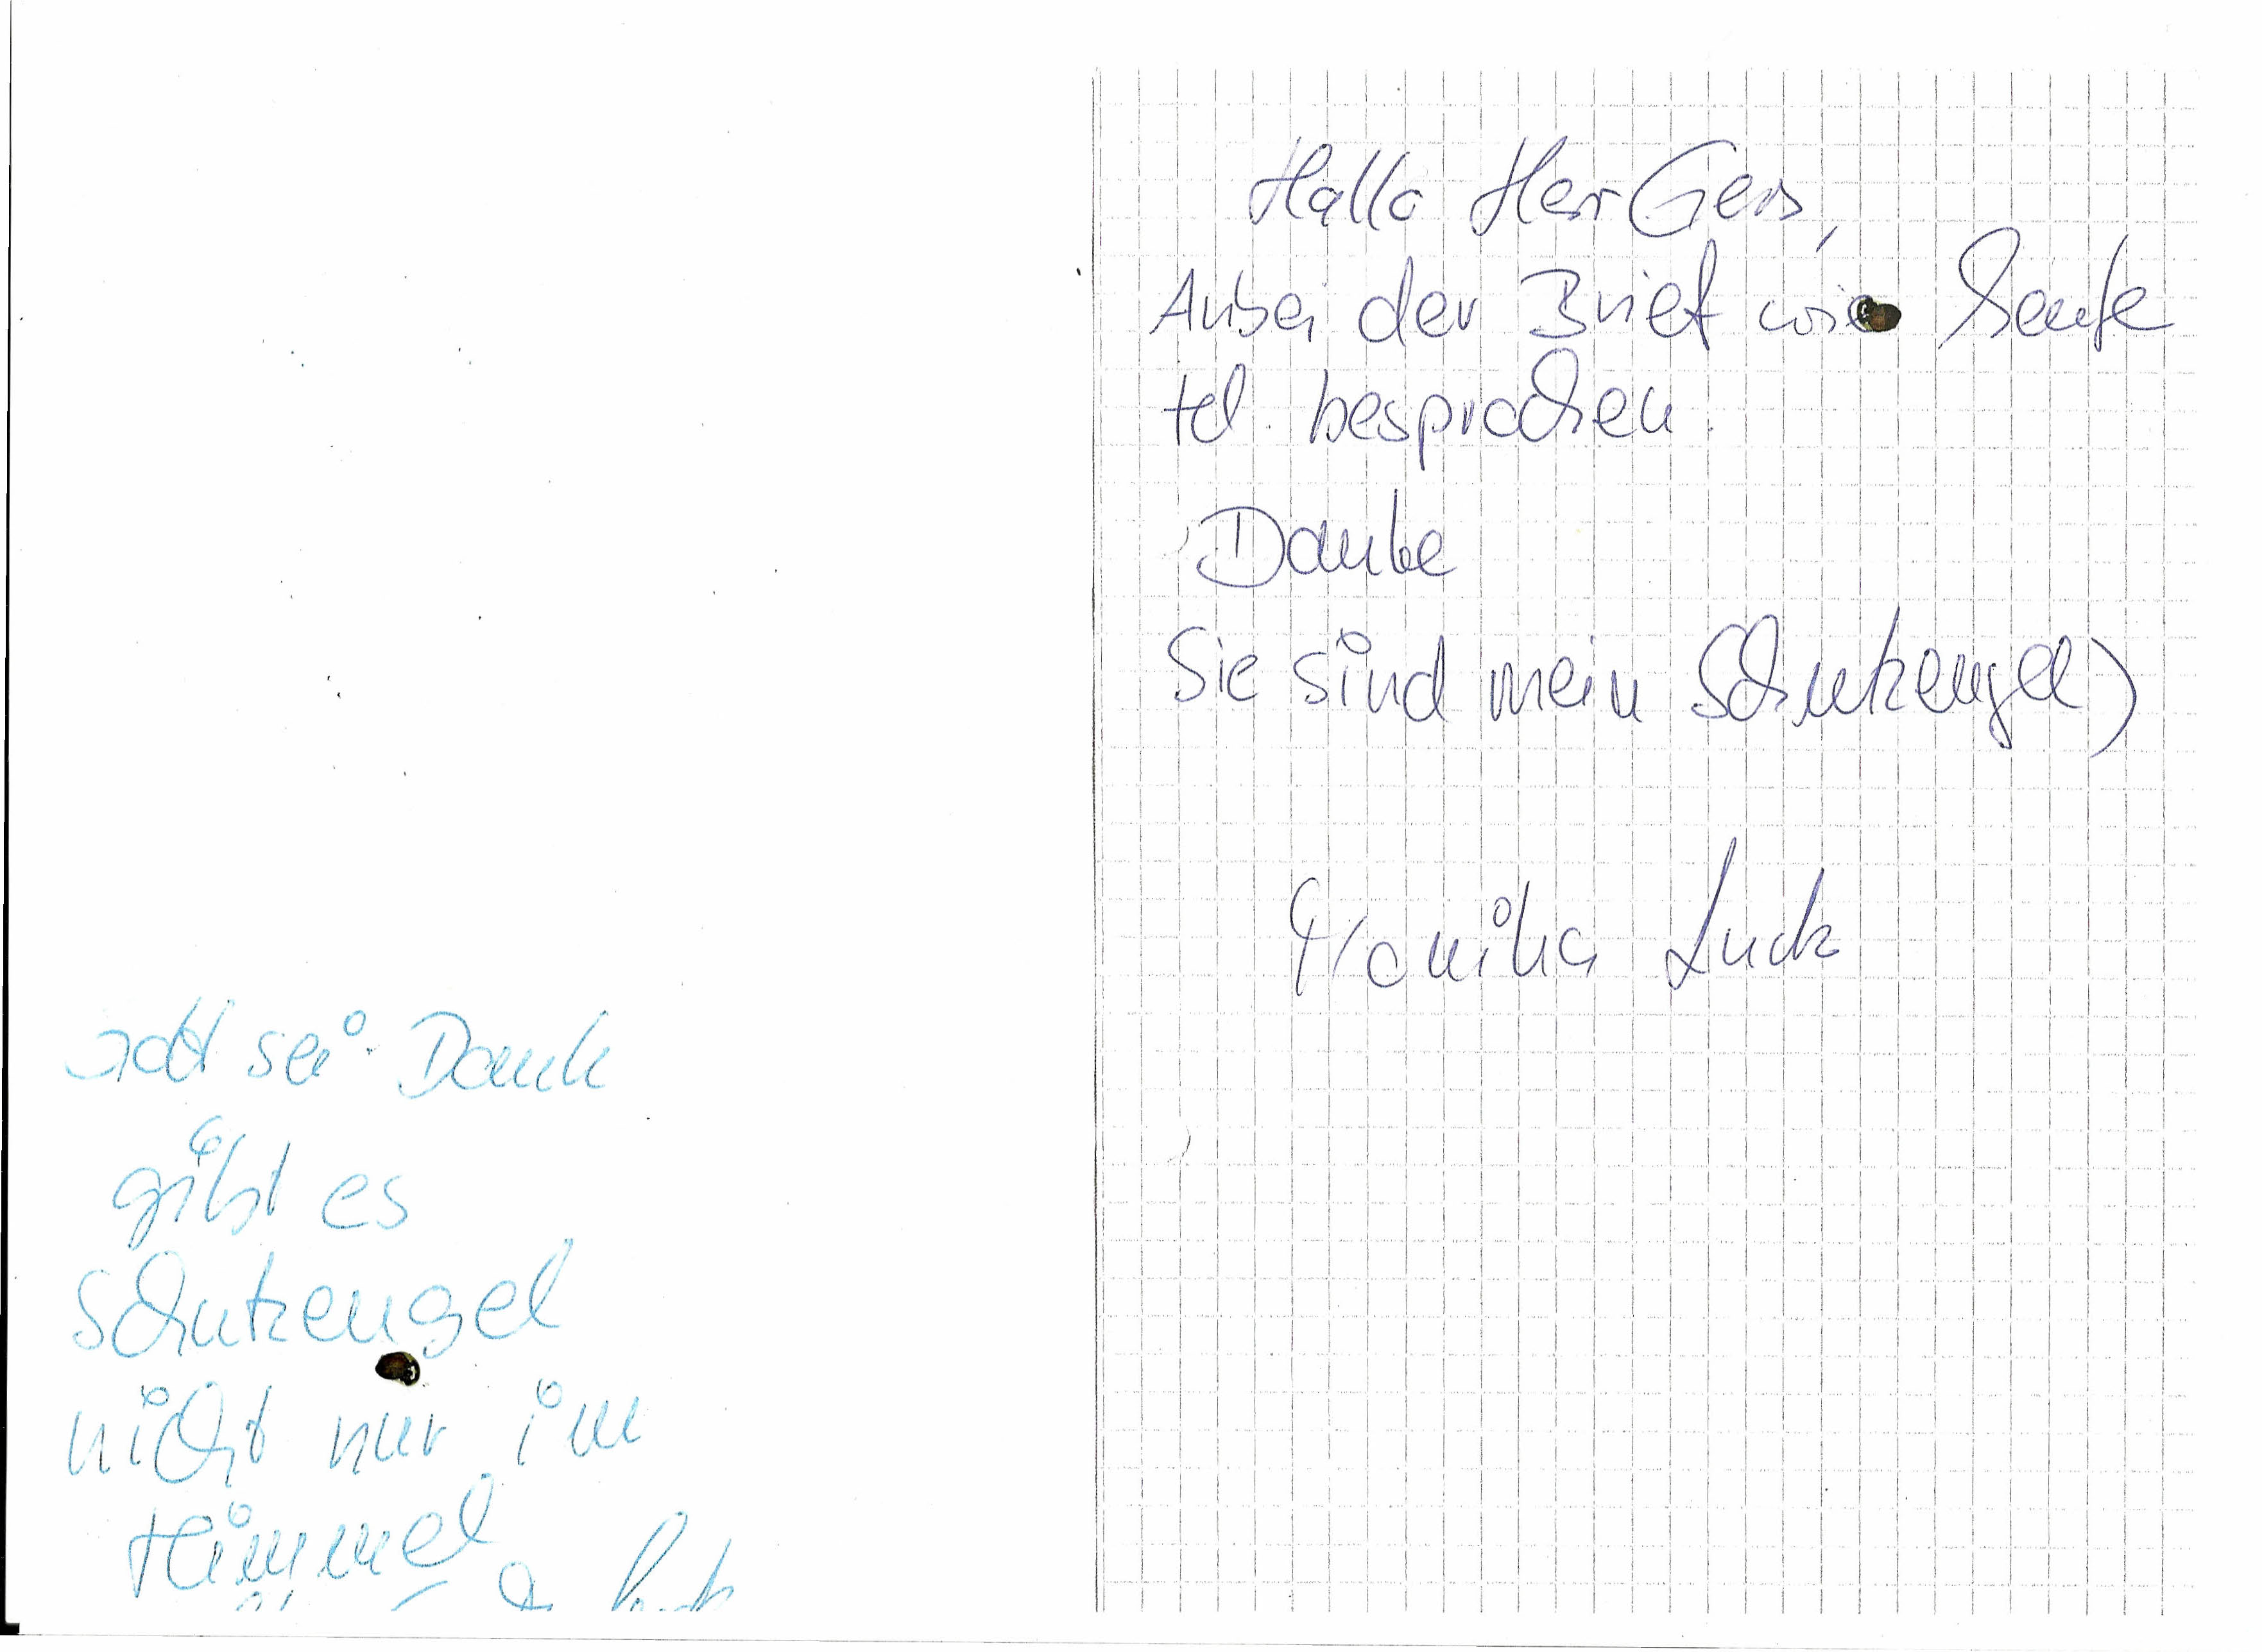 Hallo Herr Gers,
Anbei der Brief wie heute
tel. besprochen.
Danke
Sie sind mein Schutzengel)
Monika Luck
Gott sei Dank
gibt es
Schutzengel
nicht nur im
Himmel